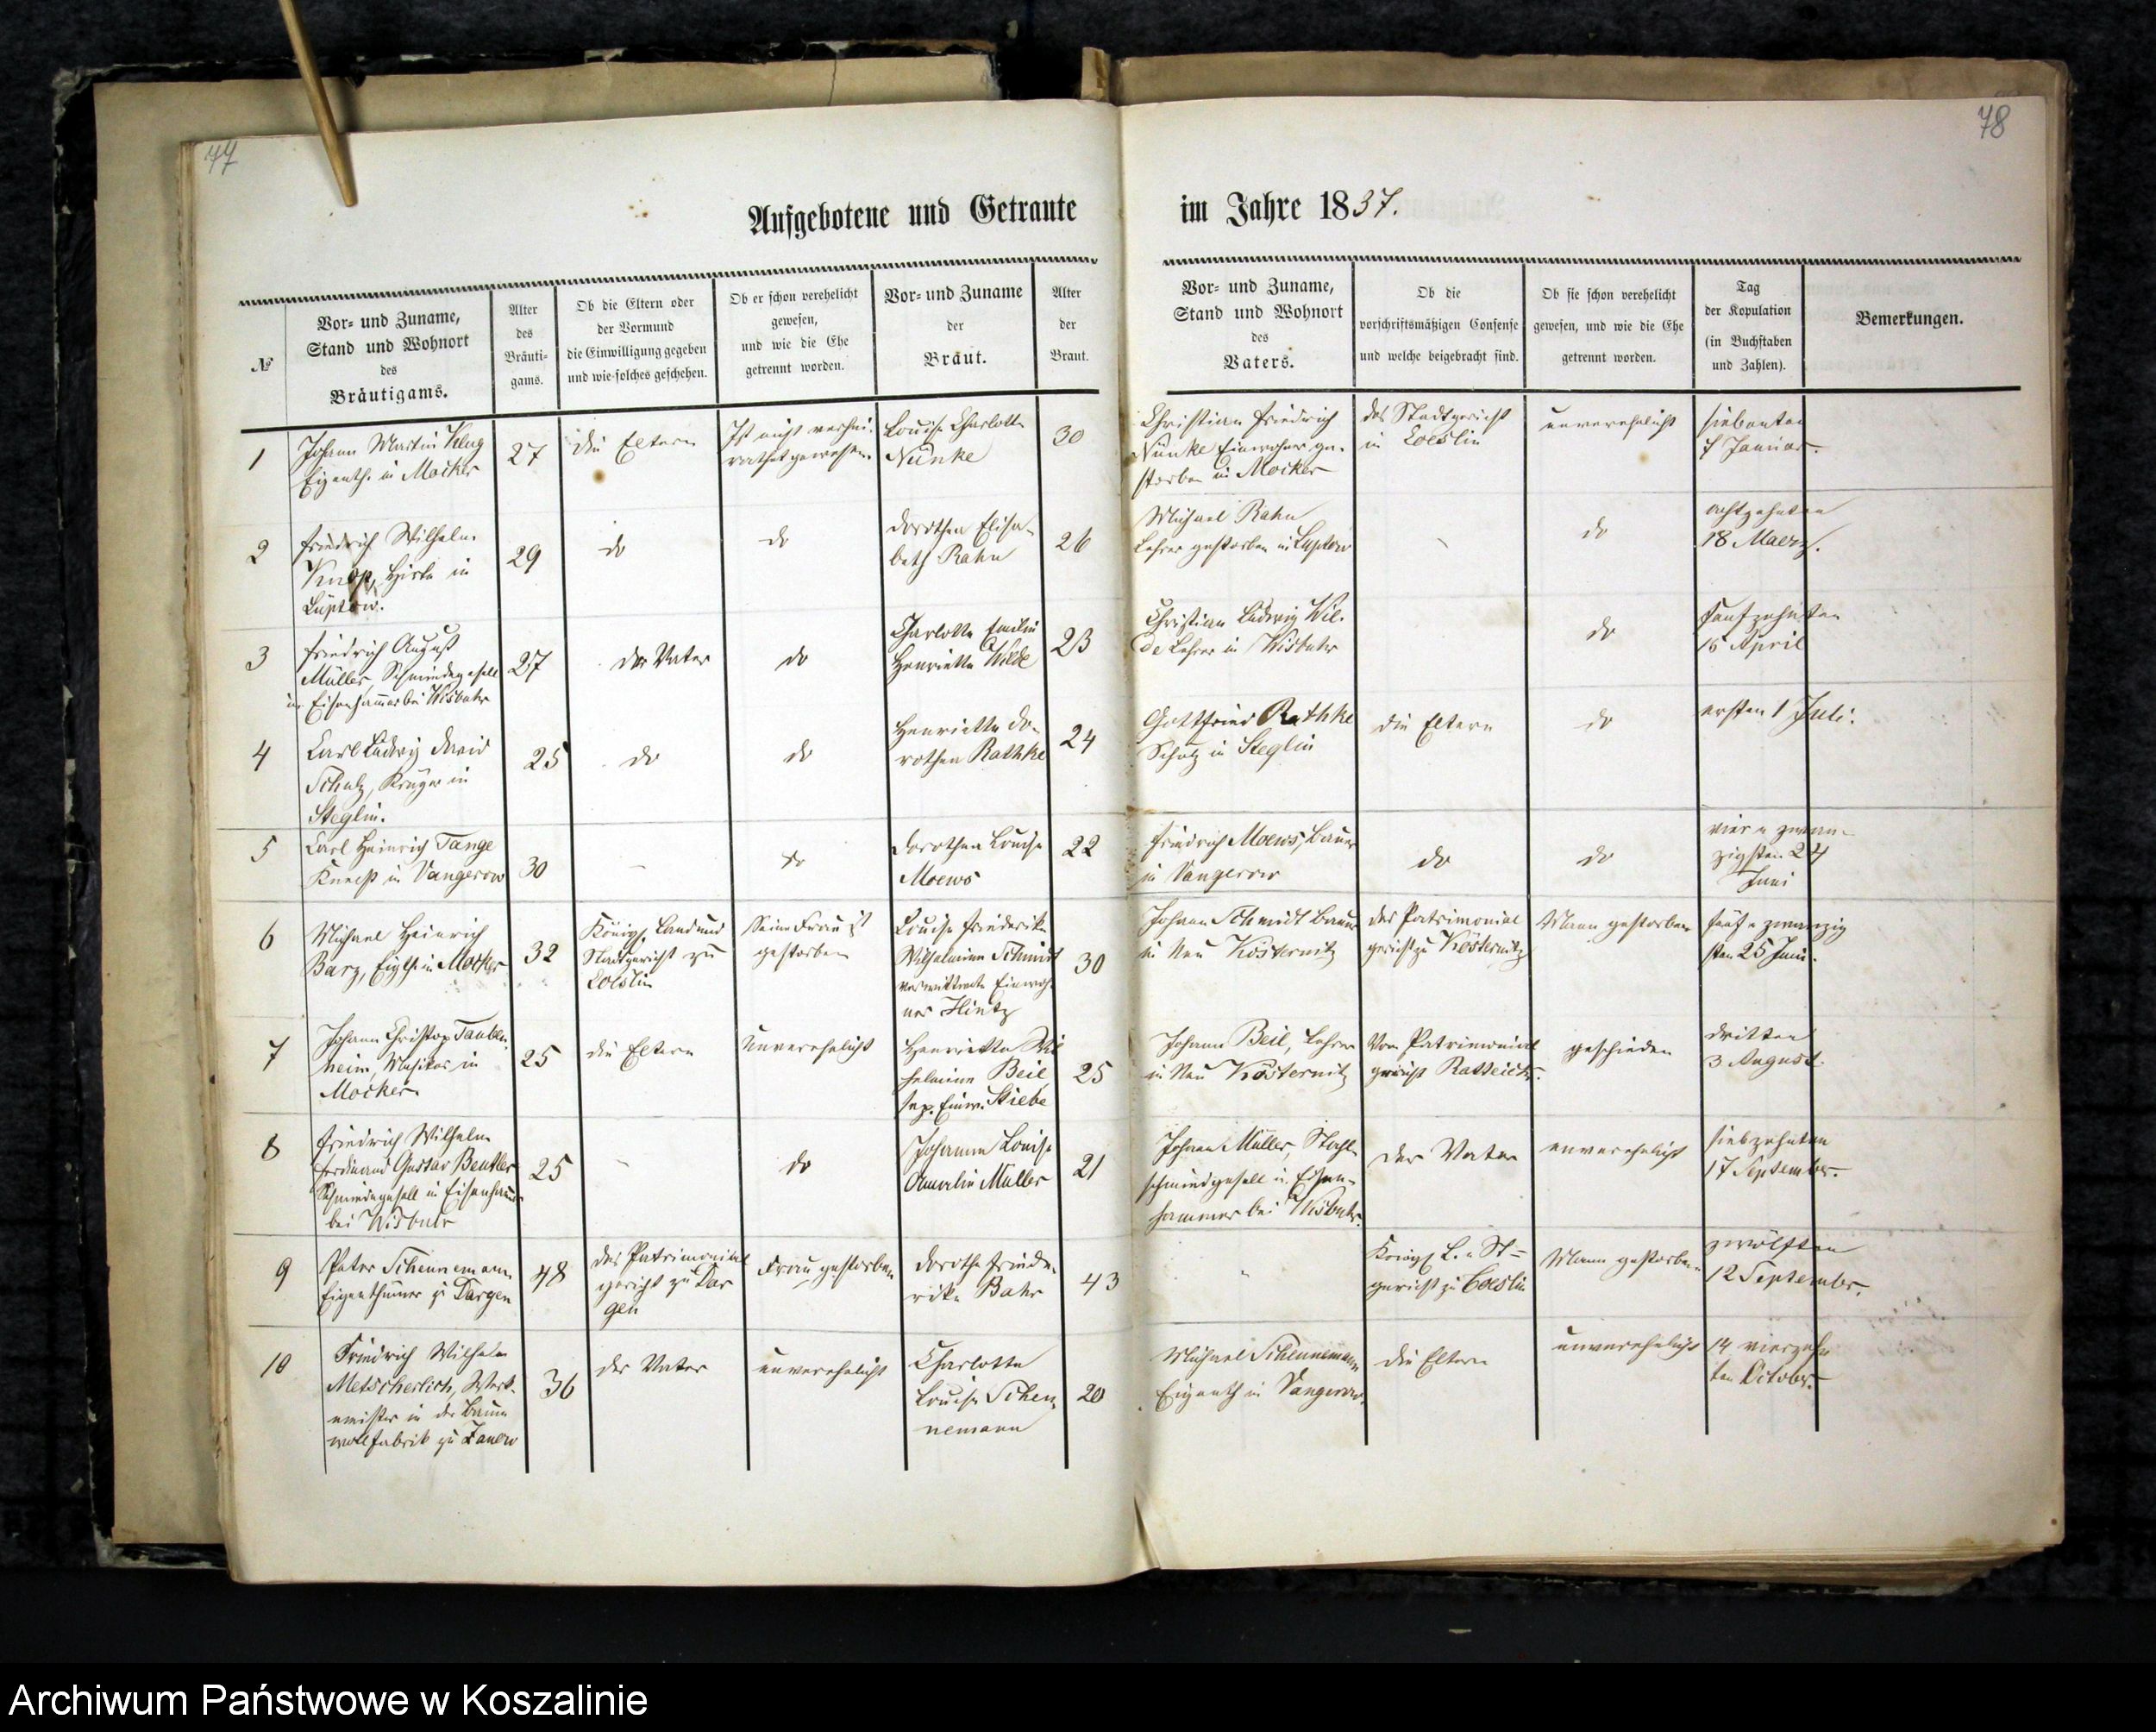 77
78
Aufgebotene und Getraute
im Jahre 1837.
№
Vor- und Zuname,
Stand und Wohnort
des
Bräutigams.
Alter
des
Bräuti-
gams.
Ob die Eltern oder
der Vormund
die Einwilligung gegeben
und wie solches geschehen.
Ob er schon verehelicht
gewesen,
und wie die Ehe
getrennt worden.
Vor- und Zuname
der
Braut.
Alter
der
Braut.
Vor- und Zuname,
Stand und Wohnort
des
Vaters.
Ob die
vorschriftsmäßigen Consense
und welche beigebracht sind.
Ob sie schon verehelicht
gewesen, und wie die Ehe
getrennt worden.
Tag
der Kopulation
(in Buchstaben
und Zahlen).
Bemerkungen.
1
Johann Martin Klug
Eigenth. in Mocker
27
die Eltern
Ist nicht verhei-
rathet gewesen.
Louise Charlotte
Nünke
30
Christian Friedrich
Nünke Einwohner ge-
storben in Mocker
das Stadtgericht
in Coeslin
unverehelicht
siebenten
7 Januar.
2
Friedrich Wilhelm
Knop, Hirte in
Lüptow.
29
do
do
Dorothea Elisa-
beth Rahn
26
Michael Rahn
Lehrer gestorben in Lüptow
do
achtzehnten
18 Maerz.
3
Friedrich August
Müller Schmiedegesell
in Eisenhammer bei Wisbuhr
27
der Vater
do
Charlotte Emilie
Henriette Wilde
23
Christian Ludwig Wil-
de Lehrer in Wisbuhr
do
funfzehnten
15 April
4
Carl Ludwig David
Schulz, Krüger in
Steglin.
25
do
do
Henriette Do-
rothea Rathke
24
Gottfried Rathke
Schulz in Steglin
die Eltern
do
ersten 1 Juli.
5
Carl Heinrich Tange
Knecht in Vangerow
30
do
Dorothea Louise
Moews
22
Friedrich Moews, Bauer
in Vangerow
do
do
vier u zwan-
zigsten 24
Juni
6
Michael Heinrich
Barz, Eigth. in Mocker
32
Königl. Land und
Stadtgericht zu
Coeslin
Seine Frau ist
gestorben
Louise Friederike
Wilhelmine Schmidt
verwittwete Einwoh-
ner Hintz
30
Johann Schmidt Bauer
in Neu Kösternitz
das Patrimonial
gericht zu Kösternitz
Mann gestorben
fünf u zwanzig
sten 25 Juni.
7
Johann Christop Tauben-
heim, Musikus in
Mocker.
25
die Eltern
Unverehelicht
Henriette Wil
helmine Beil
sep. Einw. Stiebe
25
Johann Beil, Lehrer
in Neu Kösternitz
Vom Patrimonial
gericht
geschieden
dritten
3 August.
8
Friedrich Wilhelm
Ferdinand Gustav Beutler
Schmiedegesell in Eisenhammer
bei Wisbuhr
25
do
Johanne Louise
Amalie Müller
21
Johann Müller, Stahl-
schmiedgesell in Eisen-
hammer bei Wisbuhr.
der Vater
unverehelicht
siebzehnten
17 September.
9
Peter Scheunemann
Eigenthümer zu Dargen
48
das Patrimonial
gericht zu Dar
gen
Frau gestorben
Dorothe Friede-
rike Bahr
43
Königl. L. u St=
gericht zu Coeslin
Mann gestorben
zwölften
12 September.
10
Friedrich Wilhelm
Metscherlich, Werk-
meister in der Baum
wollfabrik zu Zanow
36
der Vater
unverehelicht
Charlotte
Louise Scheu
nemann
20
Michael Scheunemann
Eigenth in Vangerow.
die Eltern
unverehelicht
14 vierzehn
ten October.
Archiwum Państwowe w Koszalinie